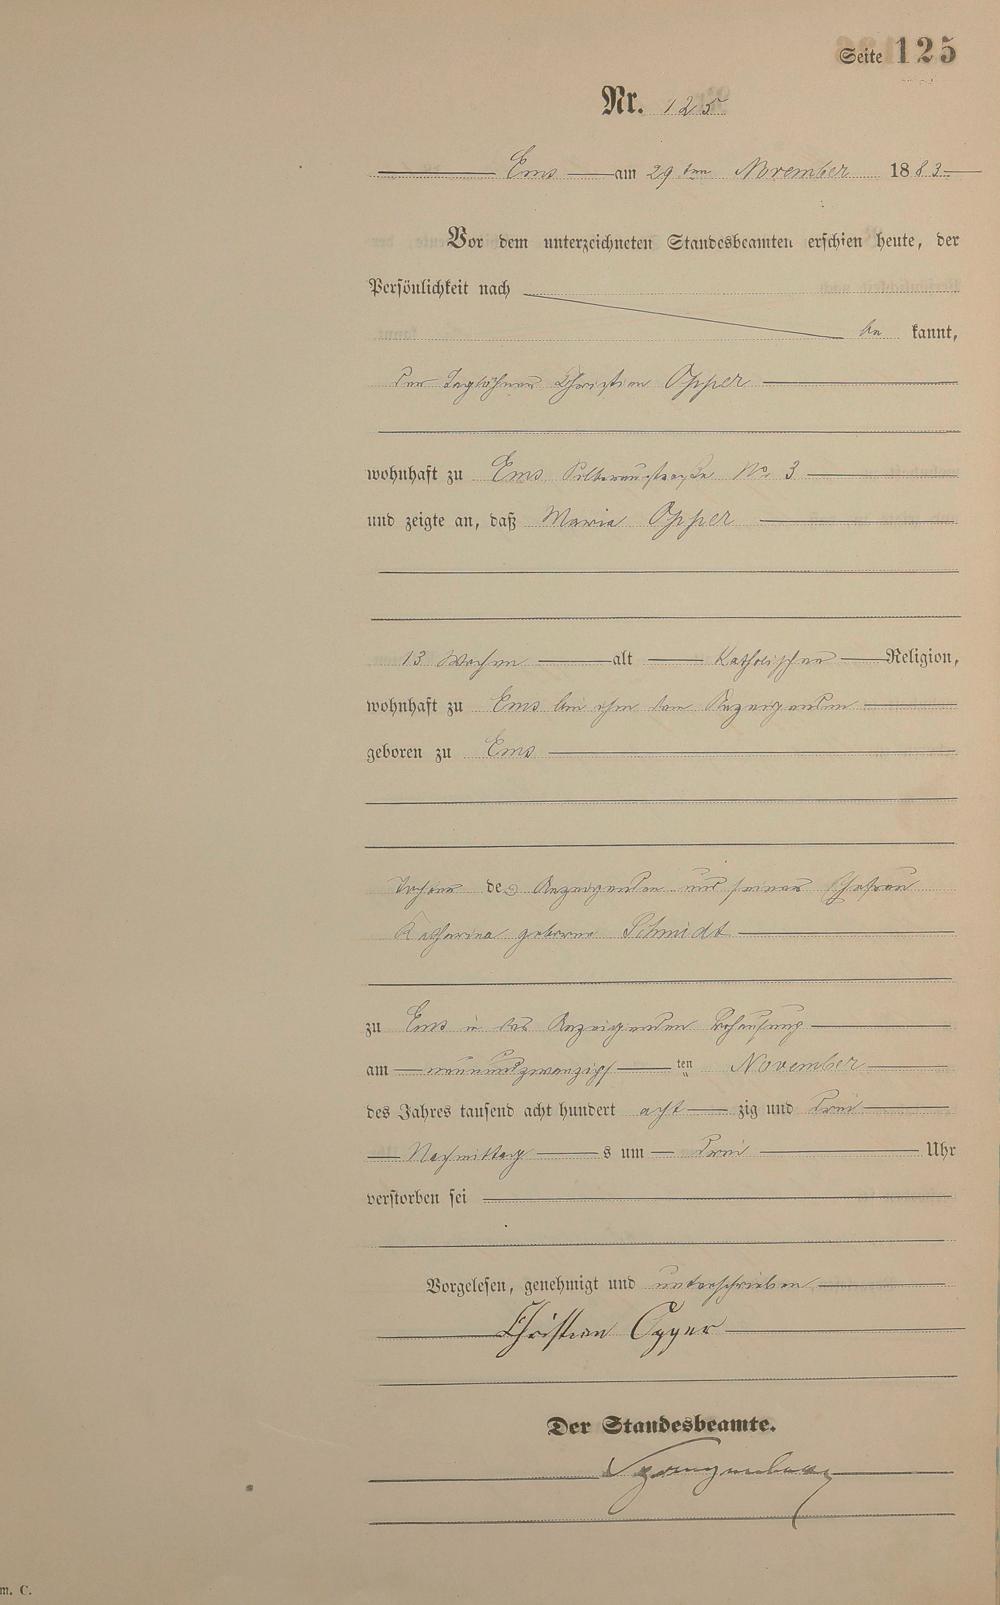 Seite 125
Nr. 125
Ems am 29ten November 1883
Vor dem unterzeichneten Standesbeamten erschien heute, der
Persönlichkeit nach
be kannt,
der Taglöhner Christian Opper
wohnhaft zu Ems Silberaustraße No 3
und zeigte an, daß Maria Opper
13 Wochen alt Katholischer Religion,
wohnhaft zu Ems bei ihm dem Anzeigenden
geboren zu Ems
Tochter des Anzeigenden und seiner Ehefrau
Katharina geborne Schmidt
zu Ems in des Anzeigenden Behausung
am neunundzwanzigs ten November
des Jahres tausend acht hundert acht zig und drei
Nachmittag s um drei Uhr
verstorben sei
Vorgelesen, genehmigt und unterschrieben
Christian Opper
Der Standesbeamte.
m. C.